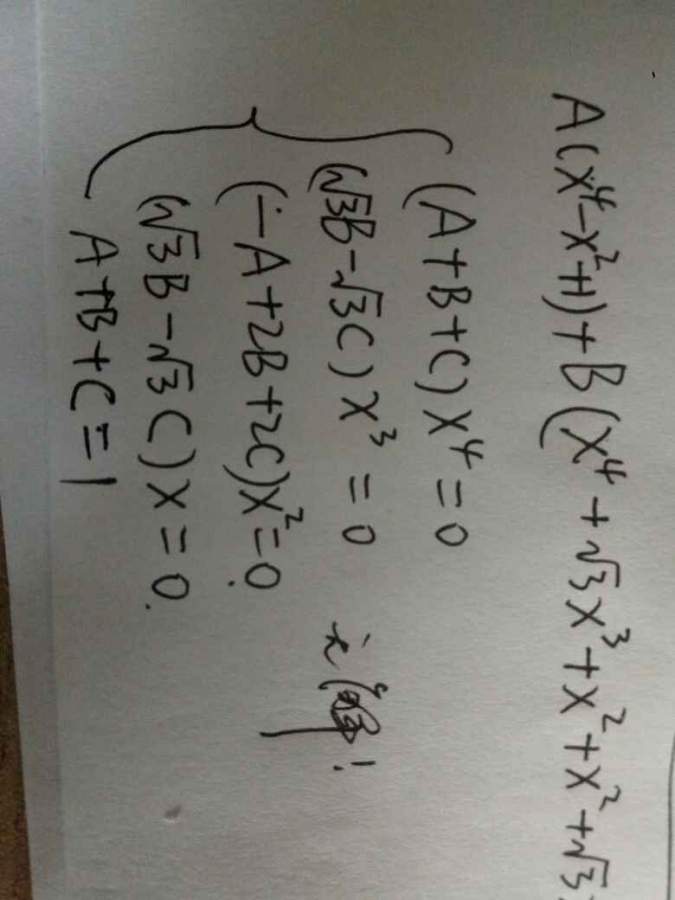 A(x⁴-x²+1)+B(x⁴+√3x³+x²+x²+√3
(A+B+C)x⁴=0
(√3B-√3C)x³=0
(-A+2B+2C)x²=0
(√3B-√3C)x=0
A+B+C=1